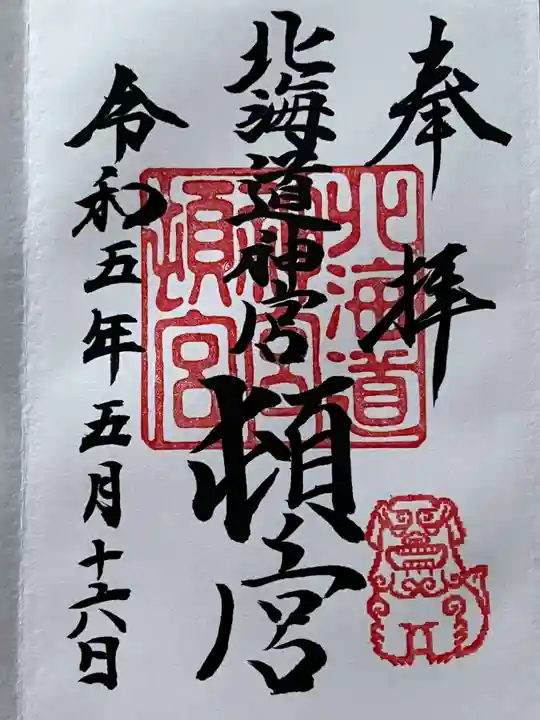 奉拝
北海道神宮頓宮
令和五年五月十六日
北海道
神宮
頓宮